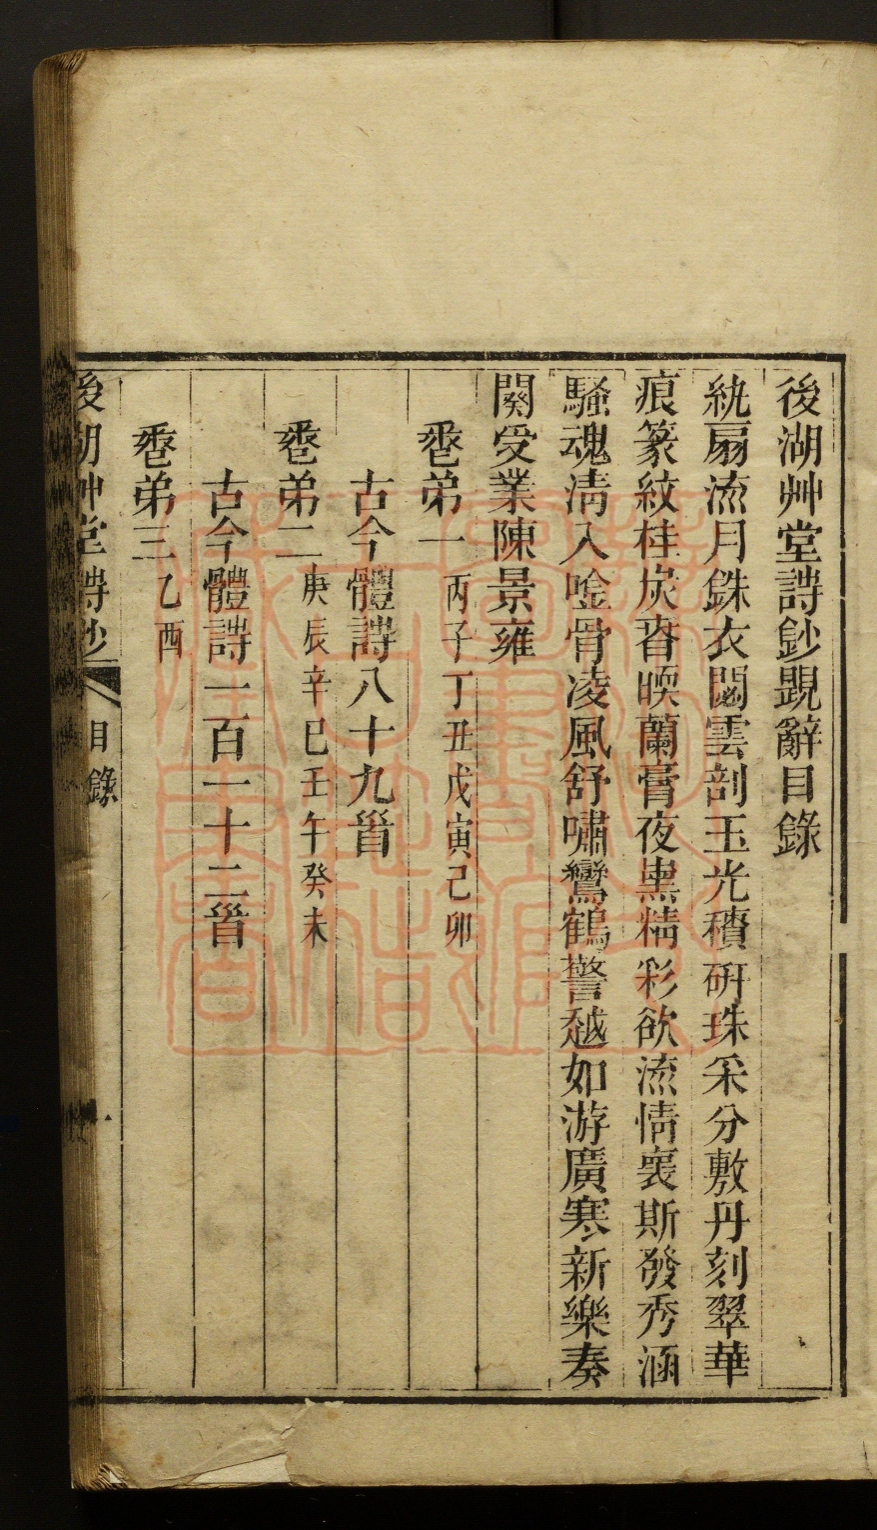 後湖艸堂詩鈔題辭目錄
紈扇流月銖衣闓雲剖玉光穳研珠采分敷丹刻翠華
痕篆紋桂炭沓暎蘭膏夜熏精彩欲流情襄斯發秀涵
騷魂淸入唫骨凌風舒嘯鸞鶴警越如游廣寒新樂奏
闋受業陳景雍
卷弟一 丙子丁丑戊寅己卯
古今體詩八十九首
卷弟二 庚辰辛巳壬午癸未
古今體詩一百一十二首
卷弟三 乙酉
後湖艸堂詩鈔 目錄 一